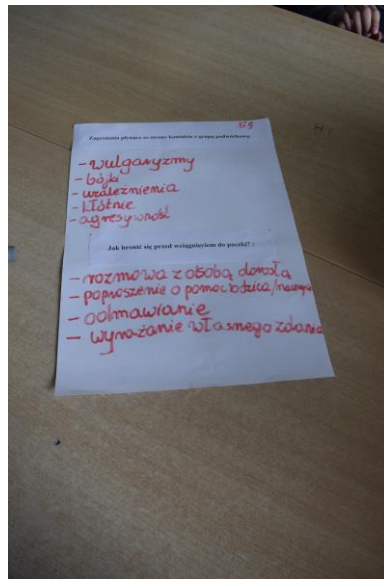 Zagrożenia płynące ze strony kontaktu z grupą podwórkową:
- wulgaryzmy
- bójki
- uzależnienia
- kłótnie
- agresywność
Jak bronić się przed wciągnięciem do paczki? :
- rozmowa z osobą dorosłą
- poproszenie o pomoc rodzica/
- odmawianie
- wyrażanie własnego zdania